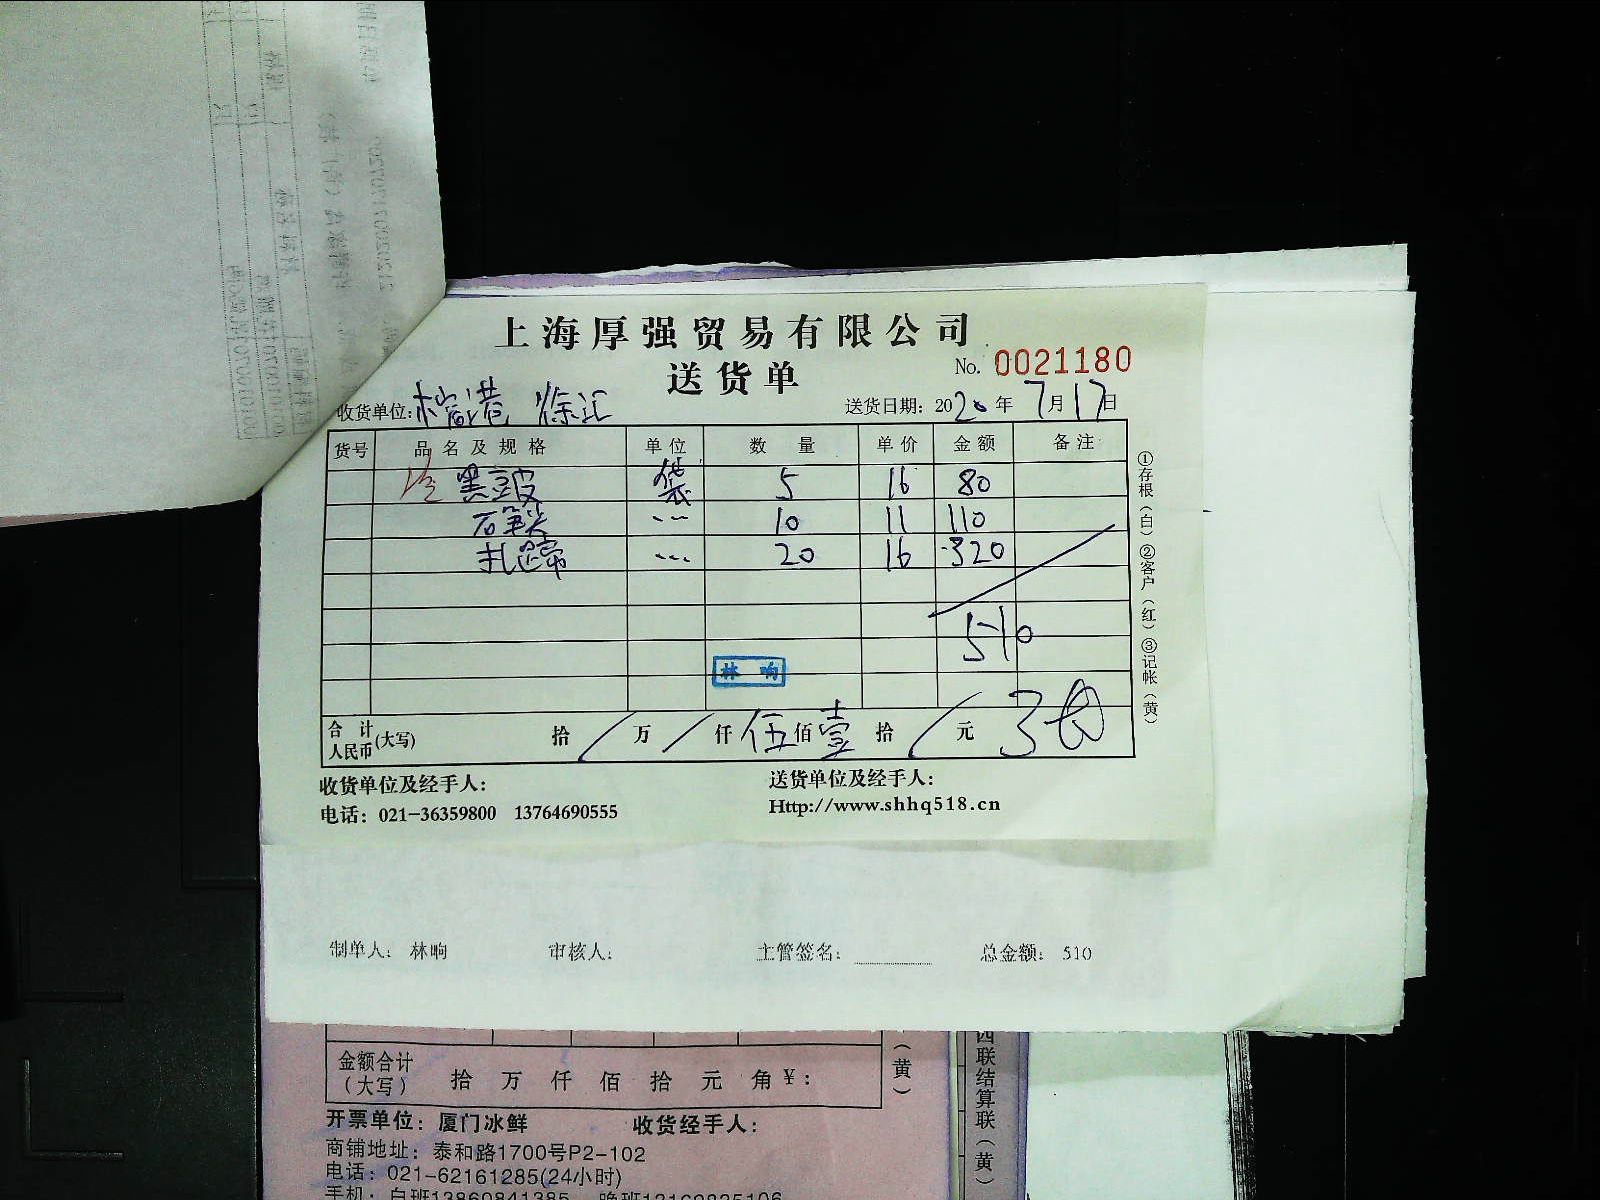 上海厚强贸易有限公司
送货单
No. 0021180
收货单位: 徐汇
送货日期: 2020年7月17日
货号 品名及规格 单位 数量 单价 金额 备注
黑豆皮 袋 5 16 80
石笋尖 〃 10 11 110
扎蹄 〃 20 16 320
510
林响
合计人民币(大写) 拾/万/仟伍佰壹拾/元
收货单位及经手人:
送货单位及经手人:
电话: 021-36359800 13764690555
Http://www.shhq518.cn
①存根(白)②客户(红)③记帐(黄)
制单人: 林响 审核人: 主管签名: 总金额: 510
金额合计(大写) 拾 万 仟 佰 拾 元 角 ¥:
(黄)
四联结算联(黄)
开票单位: 厦门冰鲜 收货经手人:
商铺地址: 泰和路1700号P2-102
电话: 021-62161285(24小时)